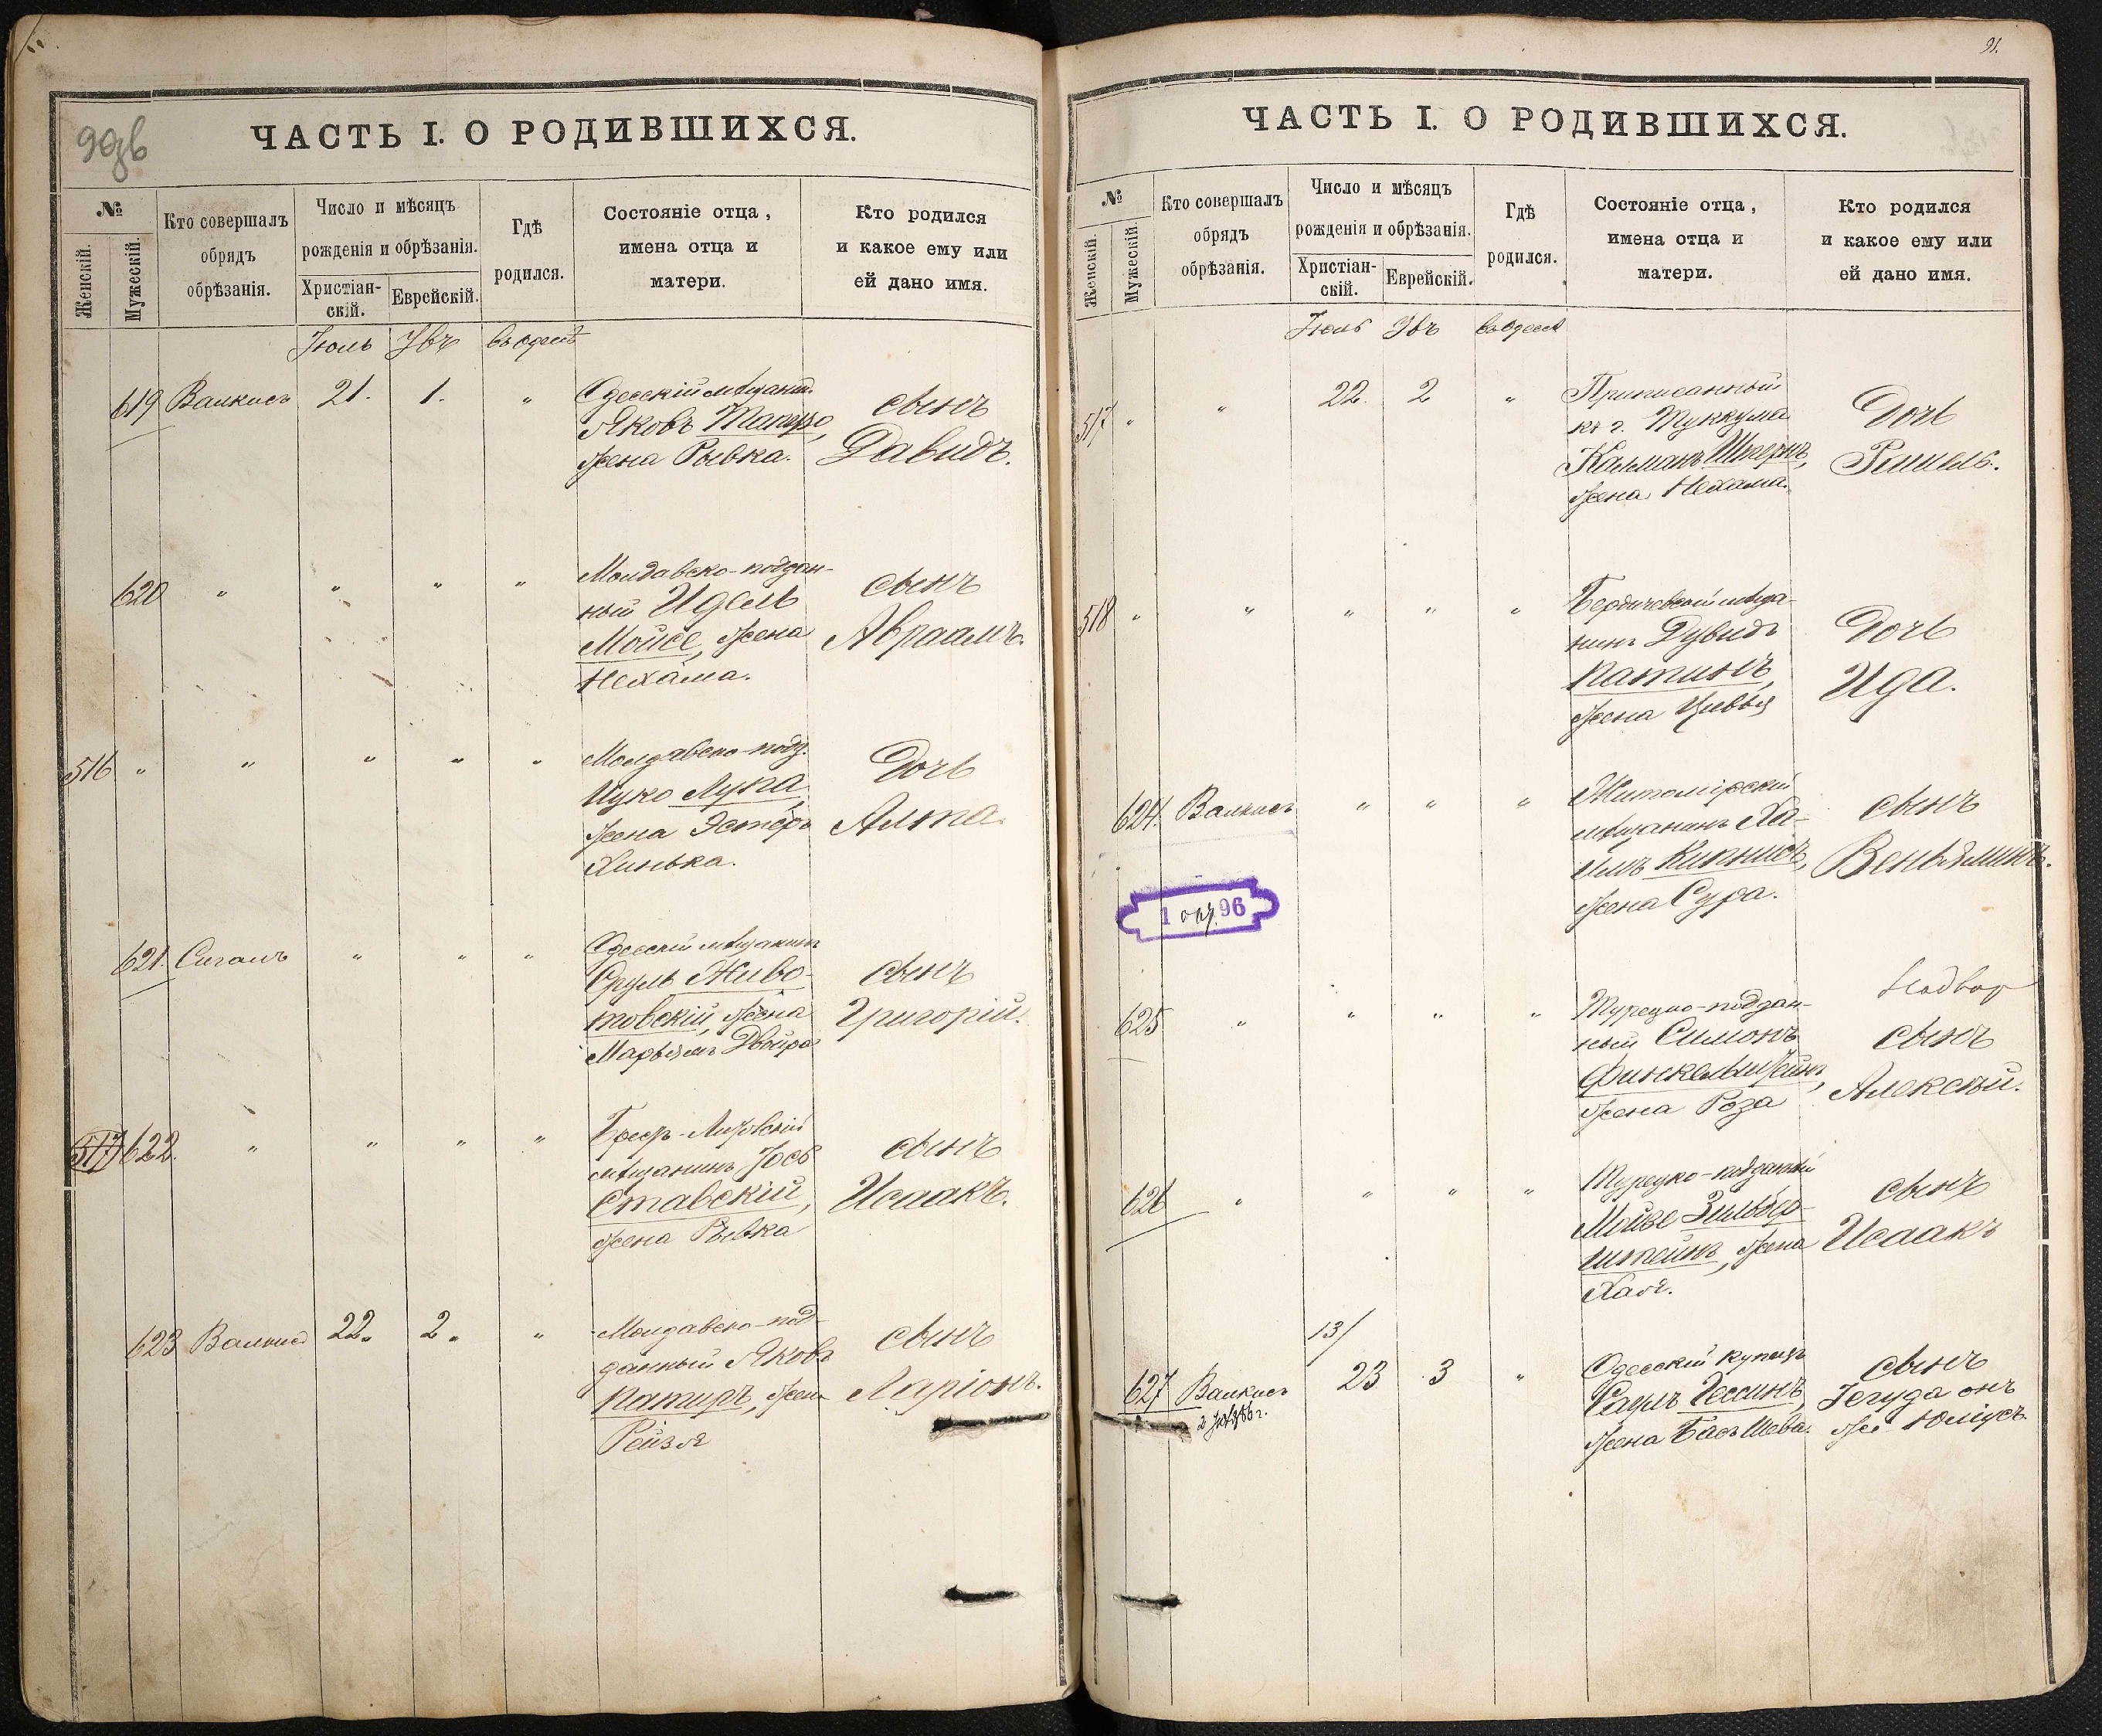 90зв
ЧАСТЬ I. О РОДИВШИХСЯ.
№
Женскій.
Мужескій.
Кто совершалъ
обрядъ
обрѣзанія.
Число и мѣсяцъ
рожденія и обрѣзанія.
Христіан-
скій.
Еврейскій.
Гдѣ
родился.
Состояніе отца,
имена отца и
матери.
Кто родился
и какое ему или
ей дано имя.
Іюль Овъ въ Одессѣ
619 Валкисъ 21. 1. " Одесскій мѣщанин.
Яковъ
жена Рывка.
сынъ
Давидъ.
620 " " " " Молдавско-поддан-
ный Идель
Мойсе, жена
Нехама.
сынъ
Авраамъ.
516 " " " " " Молдавско-подд.
Ицко Лупа,
жена Эстеръ
Хинька.
Дочь
Алта.
621. Сигалъ " " " Одесскій мѣщанинъ
Сруль Живо-
товскій, жена
Марьямъ Двойра
сынъ
Григорій.
517 622. " " " " Брест-Литовскій
мѣщанинъ Іось
Ставскій,
жена Рывка
сынъ
Исаакъ.
623 Валкисъ 22. 2. " Молдавско-под-
данный Яковъ
жена
Рейзя
сынъ
Ларіонъ.
91.
ЧАСТЬ I. О РОДИВШИХСЯ.
№
Женскій.
Мужескій.
Кто совершалъ
обрядъ
обрѣзанія.
Число и мѣсяцъ
рожденія и обрѣзанія.
Христіан-
скій.
Еврейскій.
Гдѣ
родился.
Состояніе отца,
имена отца и
матери.
Кто родился
и какое ему или
ей дано имя.
Іюль Овъ въ Одессѣ
517 " " 22. 2 " Приписанный
къ г. Туккума
Калманъ Штернъ,
жена Нехама.
Дочь
518 " " " " " Бердичевскій мѣща-
нинъ Дувидъ
Патинъ,
жена Цивья
Дочь
Ида.
624. Валкисъ " " " Житомірскій
мѣщанинъ Ха-
имъ Кипнисъ,
жена Сура.
сынъ
Веньяминъ.
1 96
625 " " " " Турецко-поддан-
ный Симонъ
Финкельштейнъ,
жена Роза
сынъ
Алексѣй.
626 " " " " Турецко-подданный
Мойзе Зильбер-
штейнъ, жена
Хая.
сынъ
Исаакъ
13/
627 Валкисъ 23 3 " Одесскій купецъ
Саулъ Гессинъ,
жена Бася Шева.
сынъ
Іегуда онъ
же Юлiусъ.